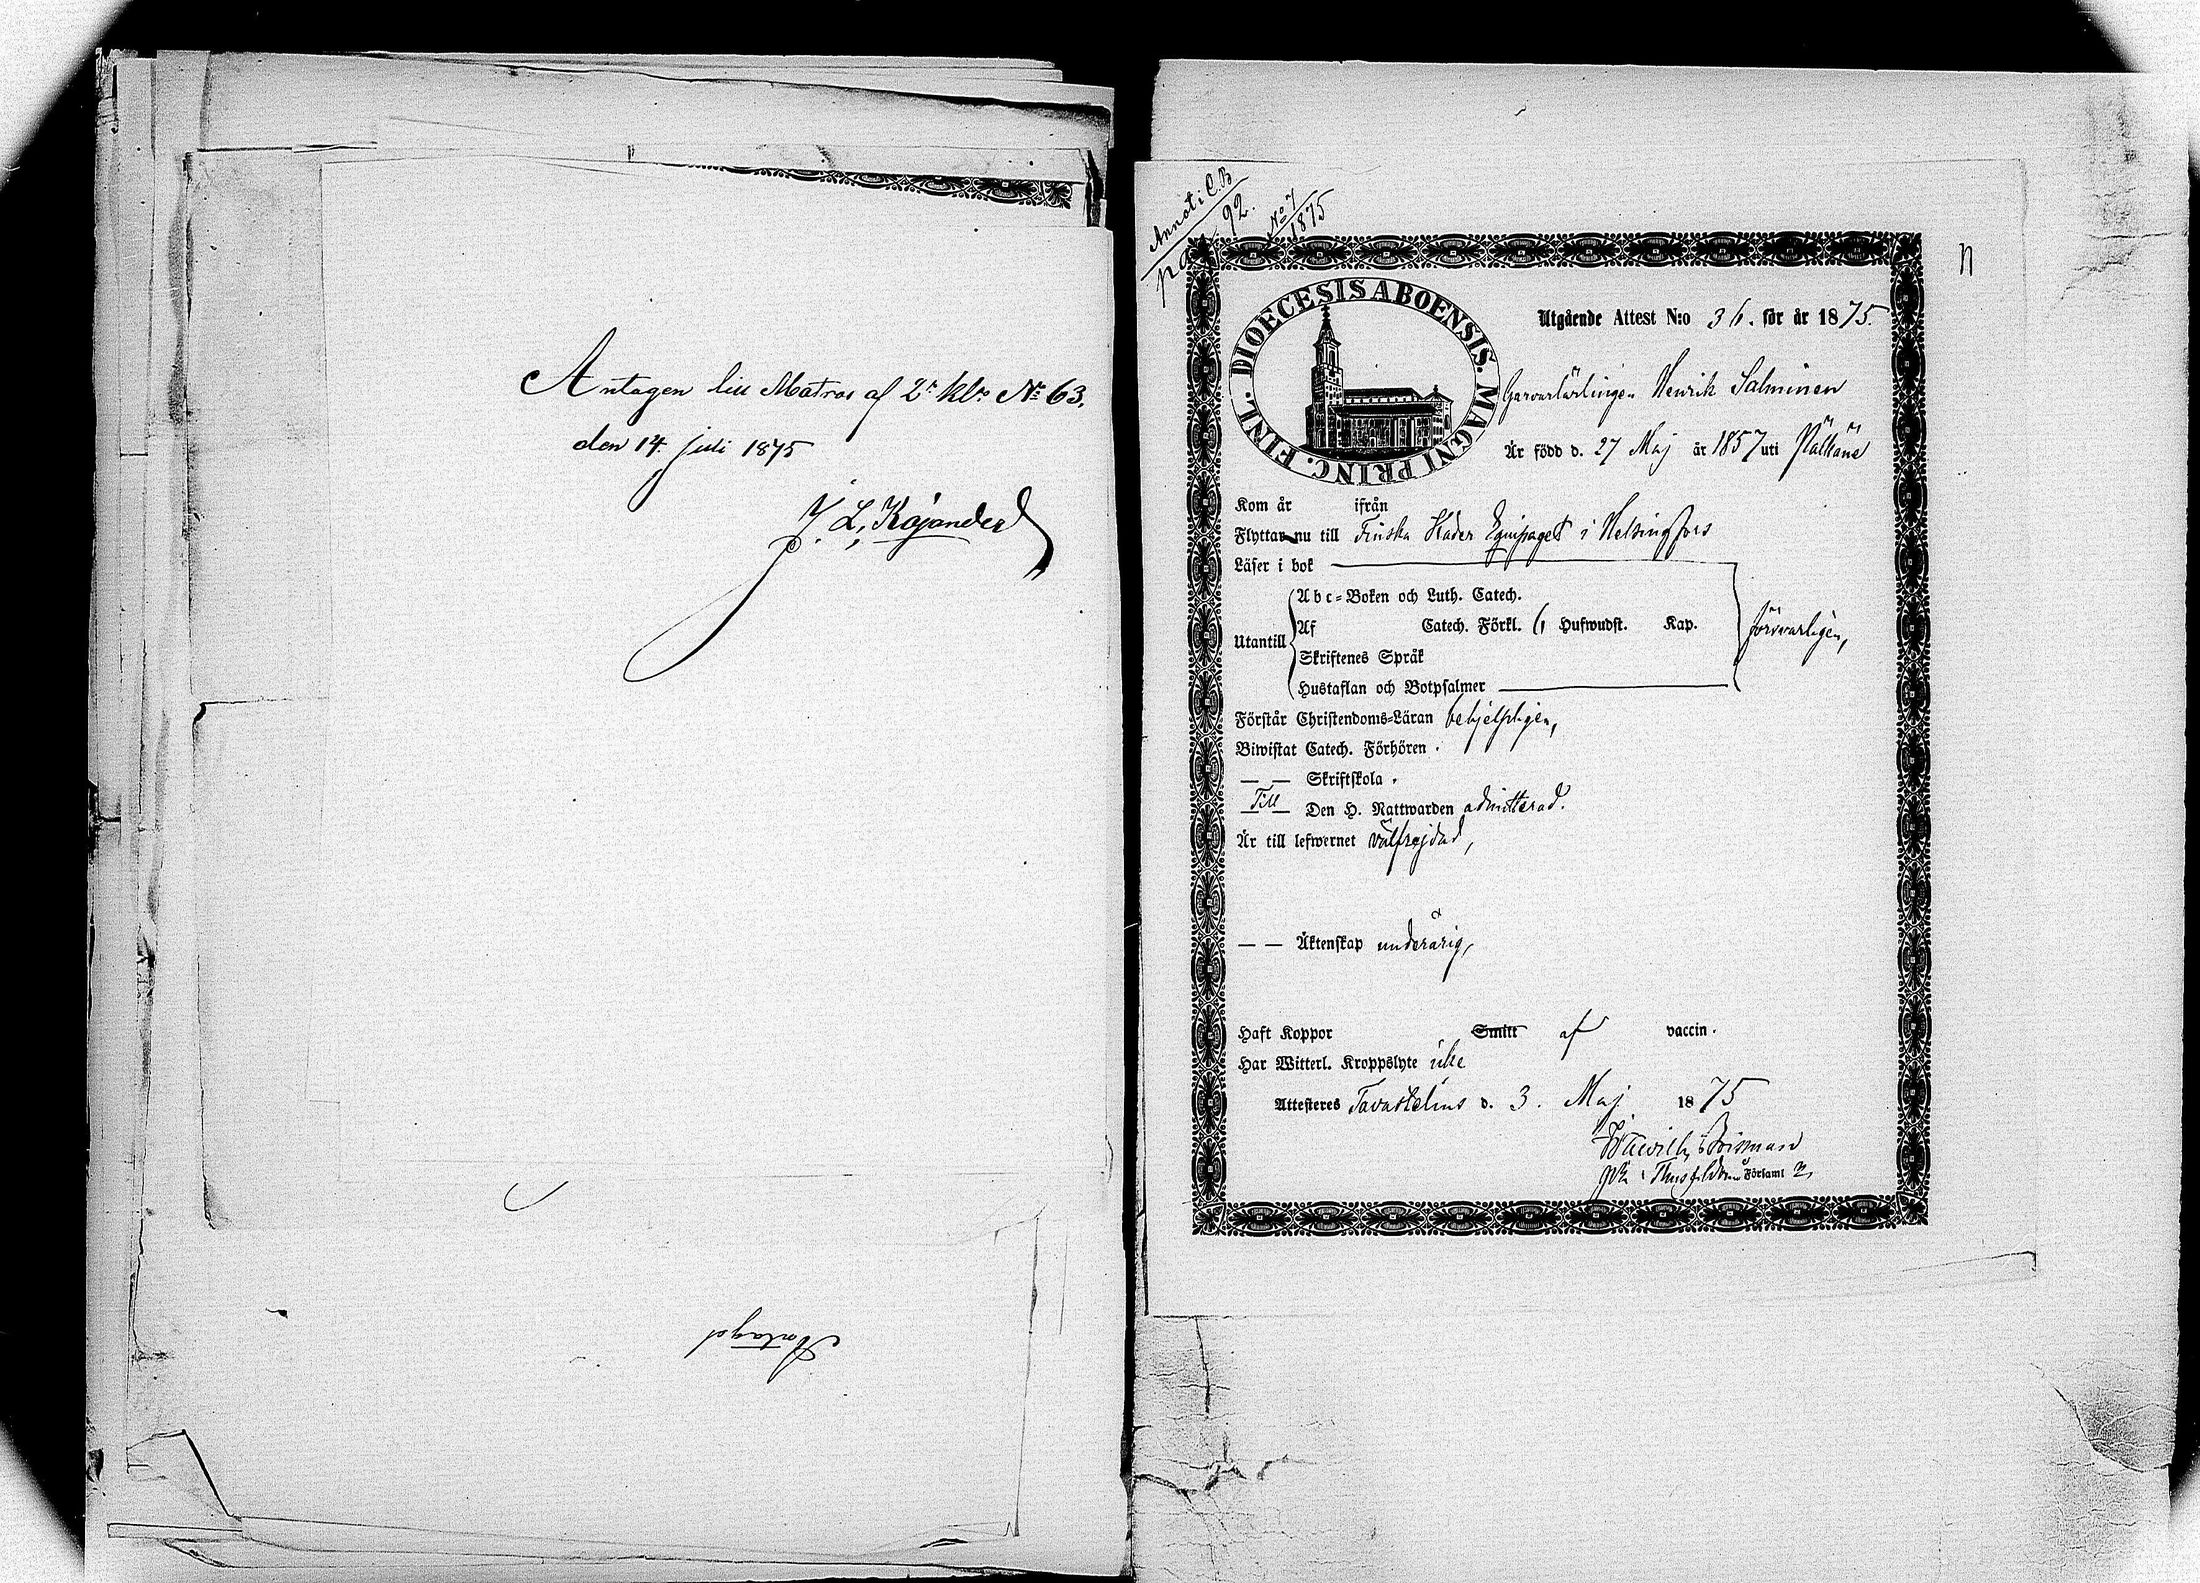 Antagen till Matros af 2a Kl. No 63.
den 14 juli 1875
J. L. Kajander
Antagel
Annot i C.B
pag. 92.
No 7
1875
n
DIOECESIS ABOENSIS. MAGNI PRINC. FINL.
Utgående Attest N:o 36. för år 1875.
Garvarlärlingen Henrik Salminen
Är född d. 27 Maj år 1857 uti Pälkäne
Kom år ifrån
Flyttar nu till Finska Kader Equipaget i Helsingfors
Läser i bok
Utantill
Abc-Boken och Luth. Catech.
Af Catech. Förkl. Hufwudst. Kap.
Skriftenes Språk
Hustaflan och Botpsalmer
försvarligen,
Förstår Christendoms-Läran behjelpligen,
Biwistat Catech. Förhören.
— — Skriftskola.
Till Den H. Nattwarden admitterad.
Är till lefwernet välfrejdad,
— — Äktenskap underårig,
Haft Koppor Smitt af vaccin.
Har Witterl. Kroppslyte icke
Attesteres Tavastehus d. 3. Maj 1875
Församl